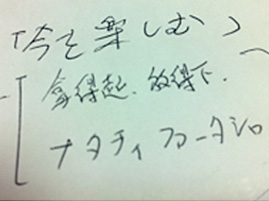 「今を楽しむ」
拿得起.放得下.
ナタティファータシロ